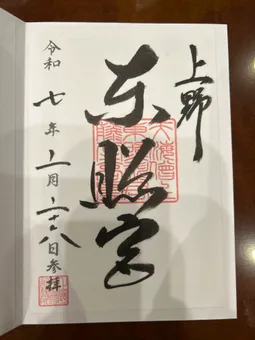 上野
東照宮
令和七年二月二十八日参拝